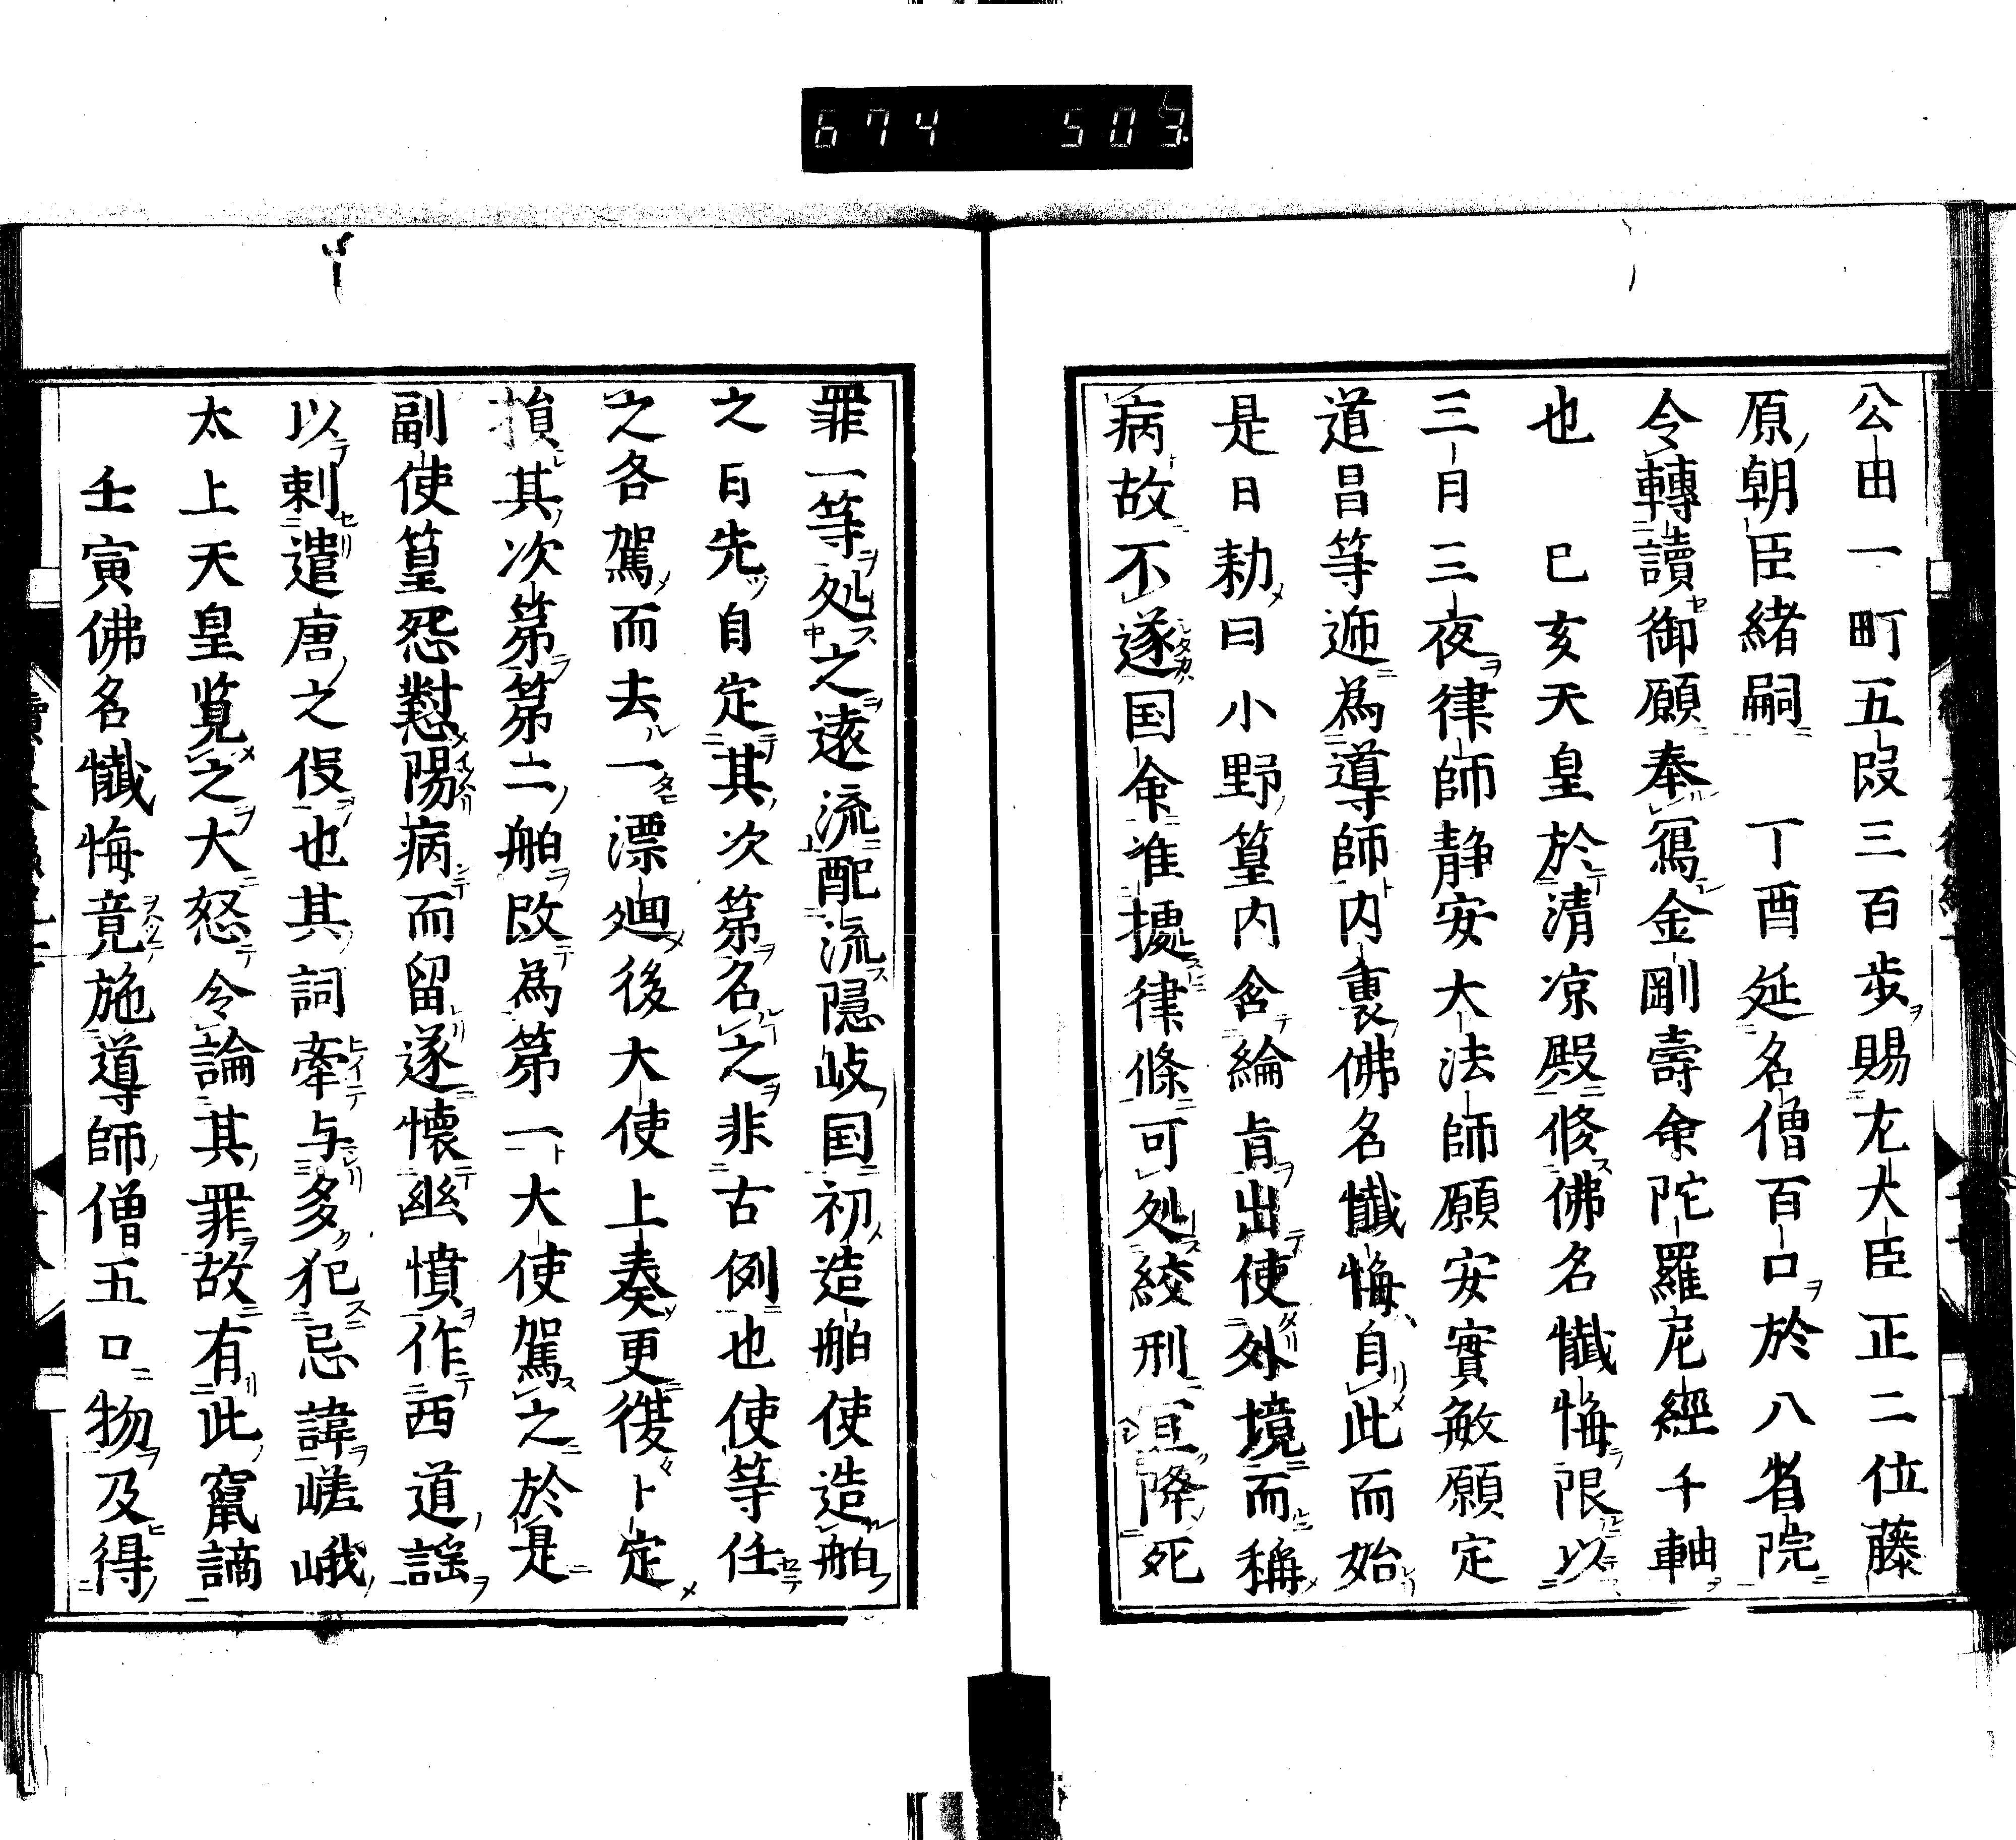 674 503
公田一町五段三百歩賜左大臣正二位藤
原朝臣緒嗣 丁酉延名僧百口於八省院
令轉讀御願奉寫金剛壽命陀羅尼經千軸
也 已亥天皇於清凉殿修佛名懺悔限以
三月三夜律師静安大法師願安實敏願定
道昌等逓為導師内裏佛名懺悔自此而始
是日勑曰小野篁内含綸旨出使外境而稱
病故不遂国命准據律條可処絞刑宜降死
罪一等処之遠流配流隠岐国初造舶使造舶
之日先自定其次第名之非古例也使等任
之各駕而去一漂廻後大使上奏更復卜定
損其次第第二舶改為第一大使駕之於是
副使篁怨懟陽病而留遂懐幽憤作西道謡
以刺遣唐之伇也其詞牽与多犯忌諱嵯峨
太上天皇覧之大怒令論其罪故有此竄謫
壬寅佛名懺悔竟施導師僧五口物及得